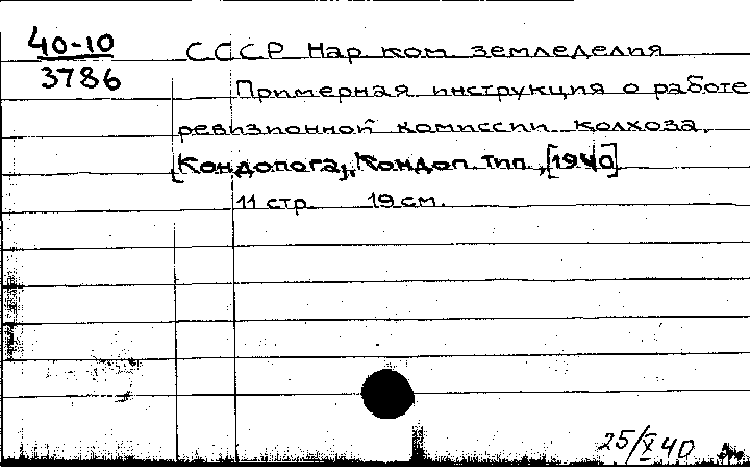 40-10
3786
СССР Нар ком земледелия
Примерная инструкция о работе
ревизионной комиссии колхоза.
[Кондопога], Кондоп. тип., [1940]
11 стр. 19 см.
25/X 40